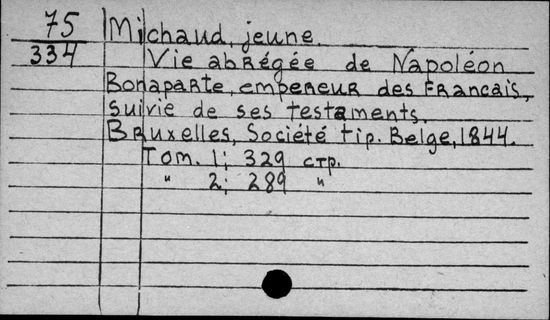 75 Michaud, jeune.
334 Vie abrégée de Napoléon
Bonaparte, empereur des Francais,
suivie de ses testaments.
Bruxelles, Société tip. Belge, 1844.
Tom. 1; 329 стр.
" 2; 289 "